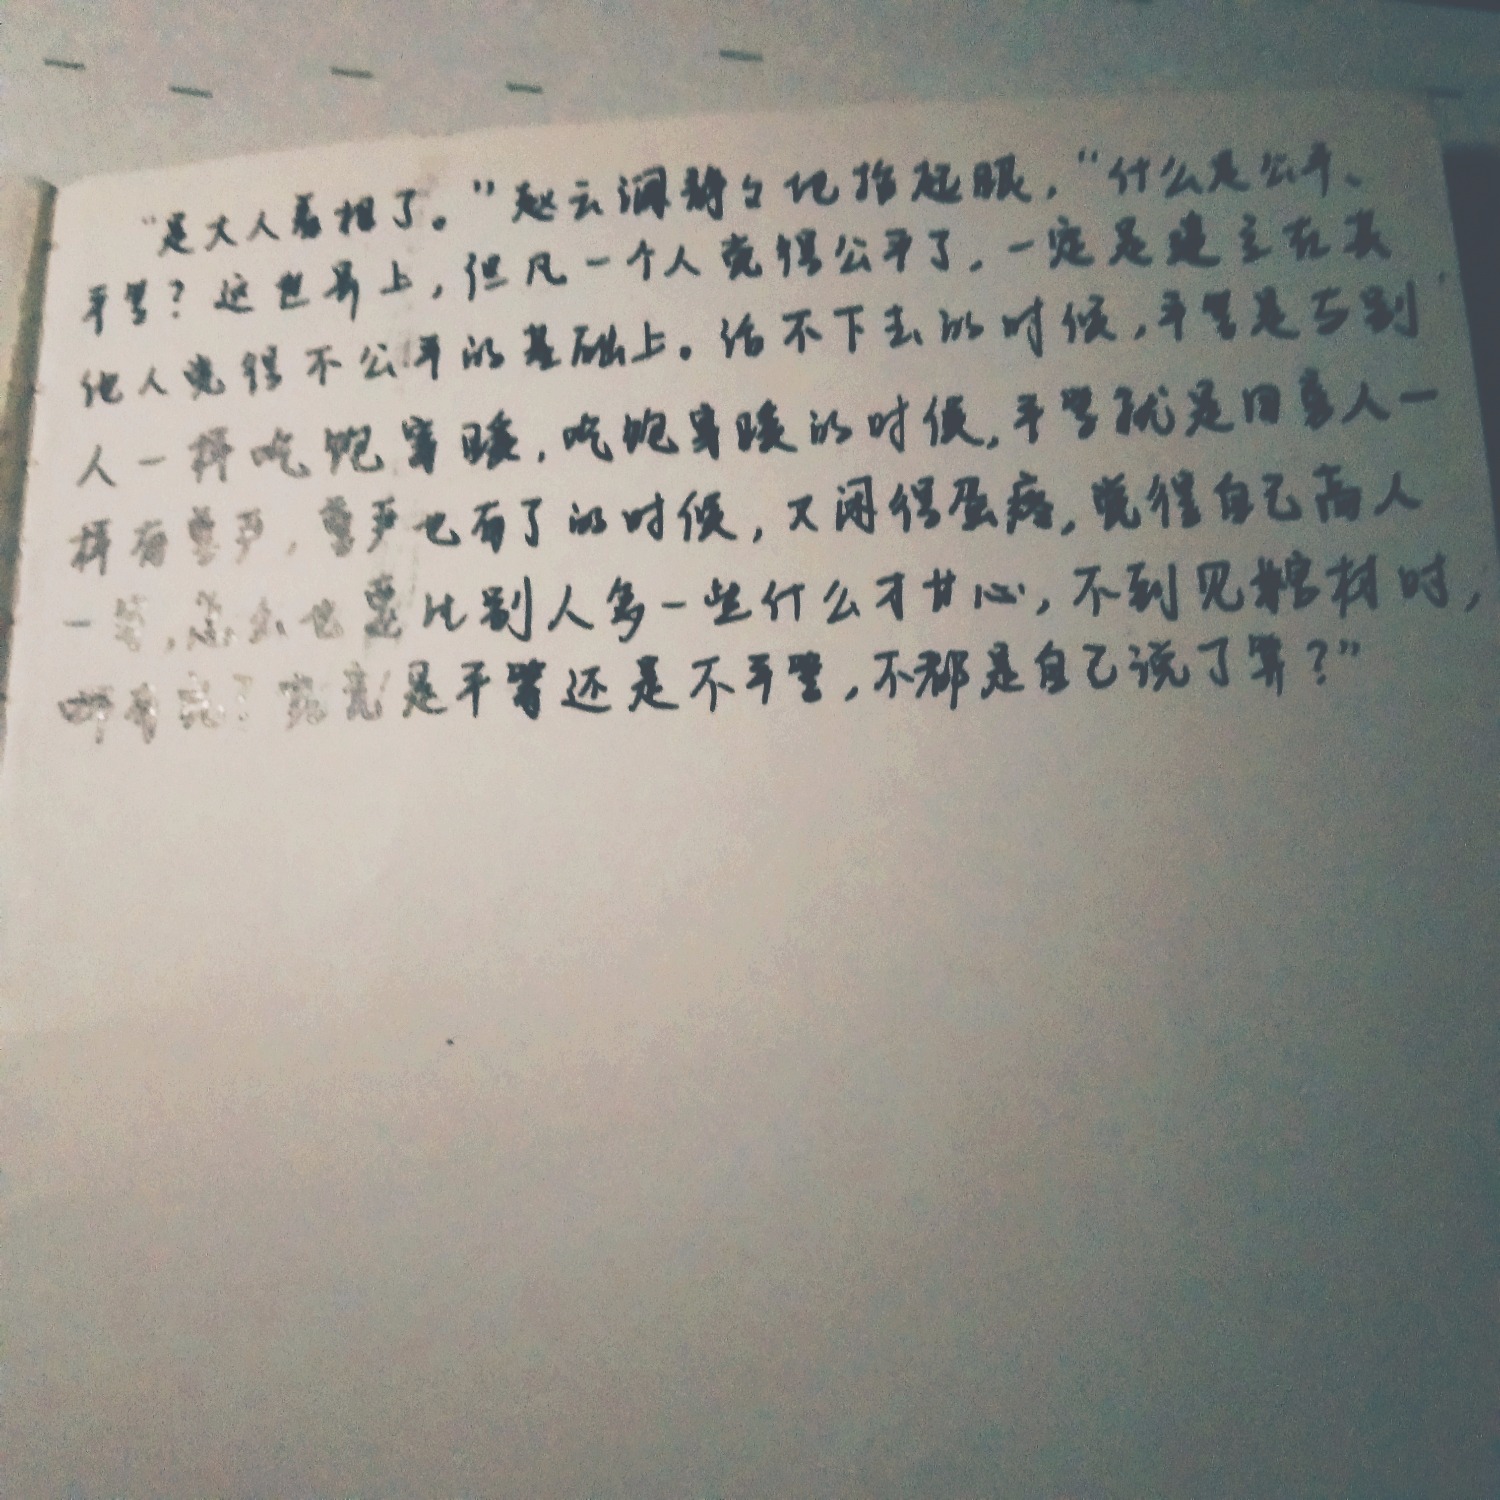 “是大人着相了。”赵云澜静静地抬起眼，“什么是公平、
平等？这世界上，但凡一个人觉得公平了，一定是建立在其
他人觉得不公平的基础上。活不下去的时候，平等是与别
人一样吃饱穿暖，吃饱穿暖的时候，平等就是同旁人一
样有尊严，尊严也有了的时候，又闲得蛋疼，觉得自己高人
一等，怎么也要比别人多一些什么才甘心，不到见棺材时，
哪有完？究竟是平等还是不平等，不都是自己说了算？”